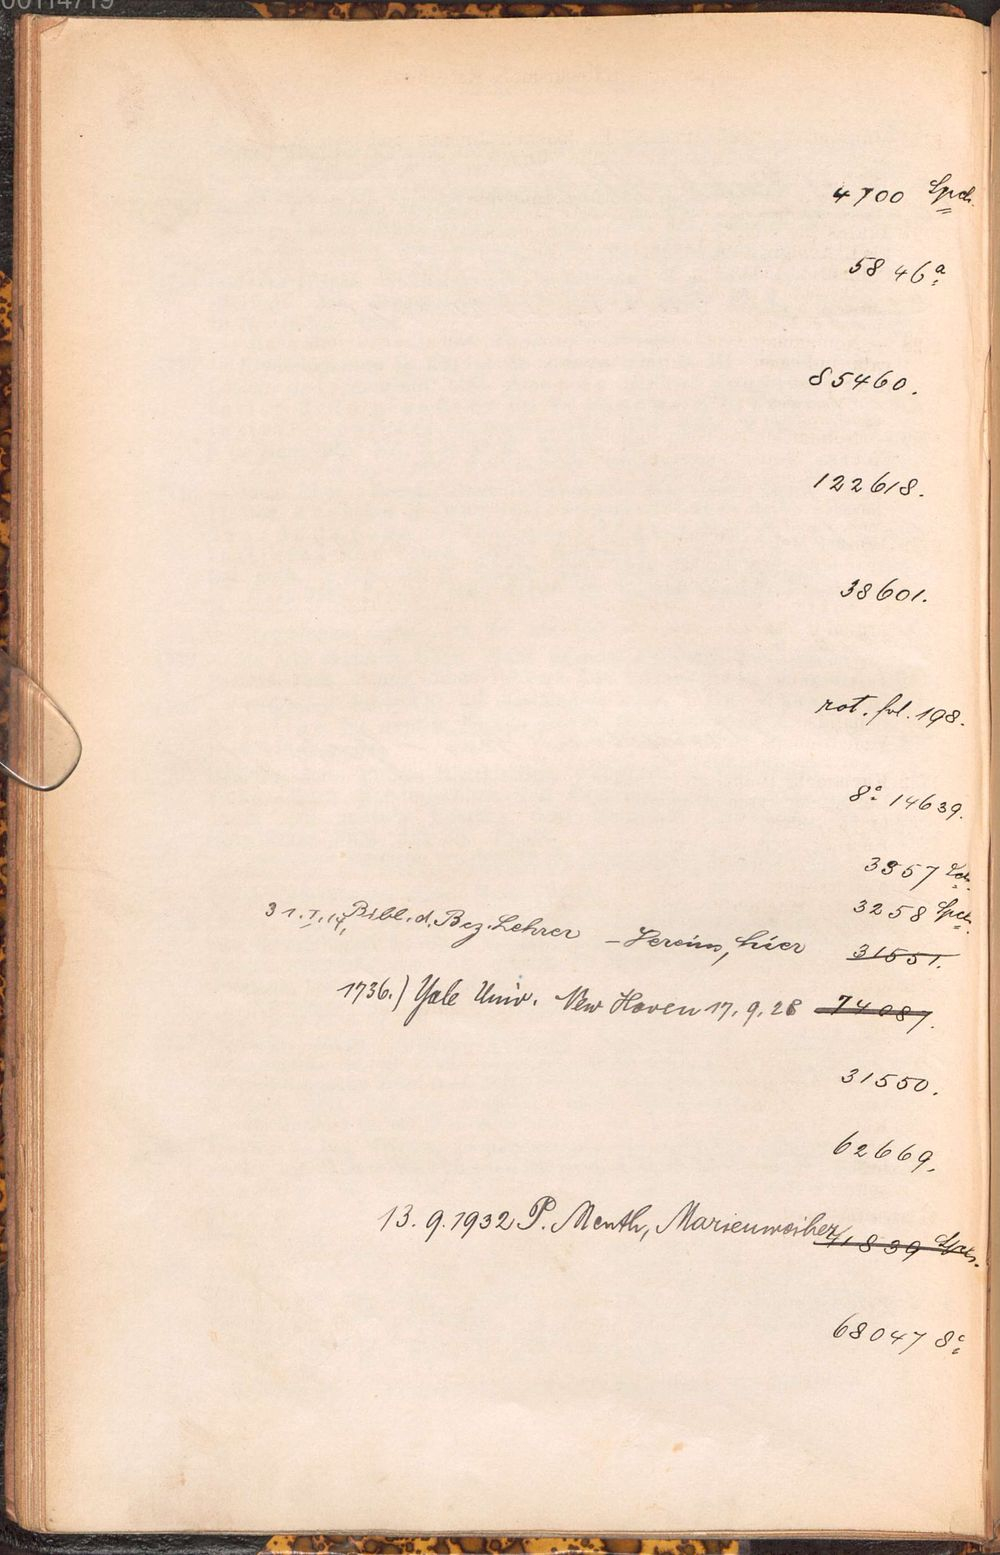 00114719
4700
5846a
85460.
122618.
38601.
rot. fol. 198.
8° 14639.
3357
3258
31.I.14, Bibl. d. Bez. Lehrer - Vereins, hier 31551.
1736.) Yale Univ. New Haven 17.9.28 74087.
31550.
62669.
13.9.1932 P. Menth, Marienweiher 839
68047 8°